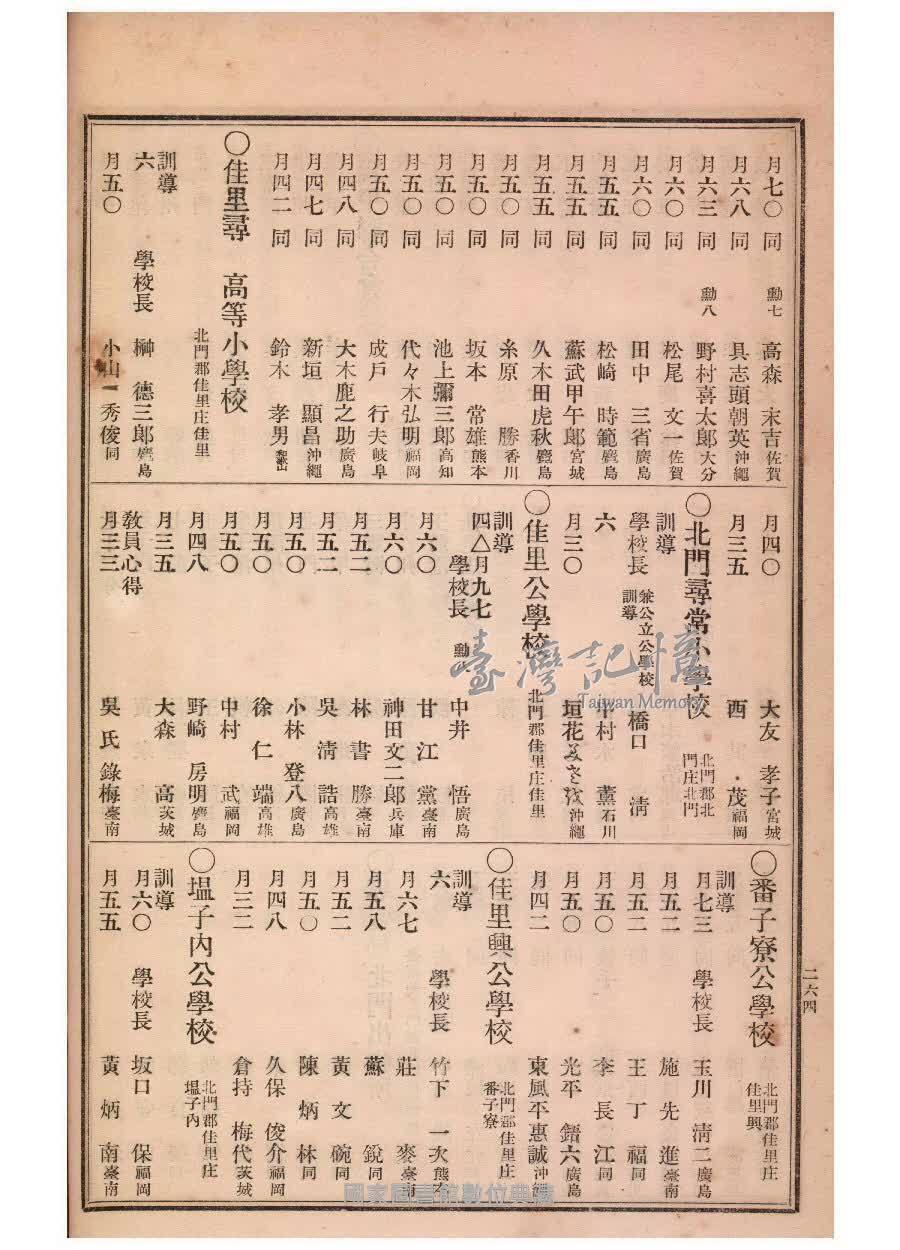 月七〇 同 勳七 高森 末吉 佐賀
月六八 同 具志頭朝英 沖繩
月六三 同 勳八 野村喜太郎 大分
月六〇 同 松尾 文一 佐賀
月六〇 同 田中 三省 廣島
月五五 同 松崎 時範 麑島
月五五 同 蘇武甲午郎 宮城
月五五 同 久木田虎秋 麑島
月五〇 同 糸原 勝 香川
月五〇 同 坂本 常雄 熊本
月五〇 同 池上彌三郎 高知
月五〇 同 代々木弘明 福岡
月五〇 同 成戶 行夫 岐阜
月四八 同 大木鹿之助 廣島
月四七 同 新垣 顯昌 沖繩
月四二 同 鈴木 孝男 和歌山
〇佳里尋 高等小學校
北門郡佳里庄佳里
訓導
六 學校長 榊 德三郎 麑島
月五〇 小山 秀俊 同
月四〇 大友 孝子 宮城
月三五 西 茂 福岡
〇北門尋常小學校 北門郡北門庄北門
訓導
學校長 兼公立公學校訓導 橋口 清
六 中村 薰 石川
月三〇 垣花 沖繩
〇佳里公學校 北門郡佳里庄佳里
訓導
四△月九七 學校長 勳 中井 悟 廣島
月六〇 甘 江 黨 臺南
月六〇 神田文二郎 兵庫
月五二 林 書 勝 臺南
月五二 吳 清 誥 高雄
月五〇 小林 登八 廣島
月五〇 徐 仁 端 高雄
月五〇 中村 武 福岡
月四八 野崎 房明 麑島
月三五 大森 高 茨城
教員心得
月三三 吳氏錄梅 臺南
〇番子寮公學校 北門郡佳里庄佳里興
訓導
月七三 學校長 玉川淸二 廣島
月五二 施 先 進 臺南
月五二 王 丁 福 同
月五〇 李 長 江 同
月五〇 光平 鋙六 廣島
月四二 東風平惠誠 沖繩
〇佳里興公學校 北門郡佳里庄番子寮
訓導
六 學校長 竹下 一次 熊本
月六七 莊 麥 臺南
月五八 蘇 銳 同
月五二 黃 文 碗 同
月五〇 陳 炳 林 同
月四八 久保 俊介 福岡
月三二 倉持 梅代 茨城
〇塭子內公學校 北門郡佳里庄塭子內
訓導
月六〇 學校長 坂口 保 福岡
月五五 黃 炳 南 臺南
二六四
臺灣記憶
Taiwan Memory
國家圖書館數位典藏